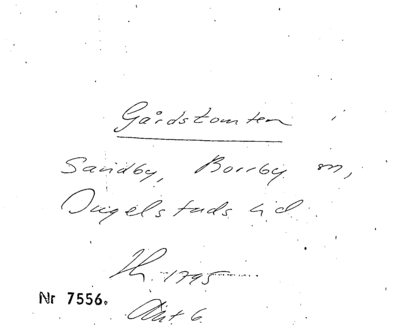 Gårdstomten i
Sandby, Borrby sn,
Ingelstads hd.
1795
Nr 7556.
Akt 6.